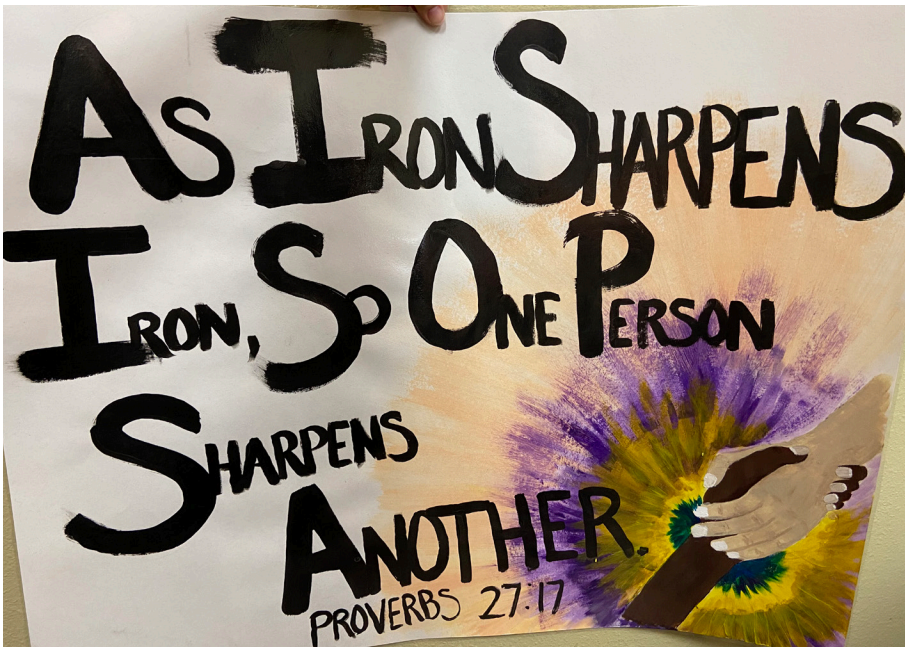 As Iron Sharpens
Iron, So One Person
Sharpens
Another.
PROVERBS 27:17